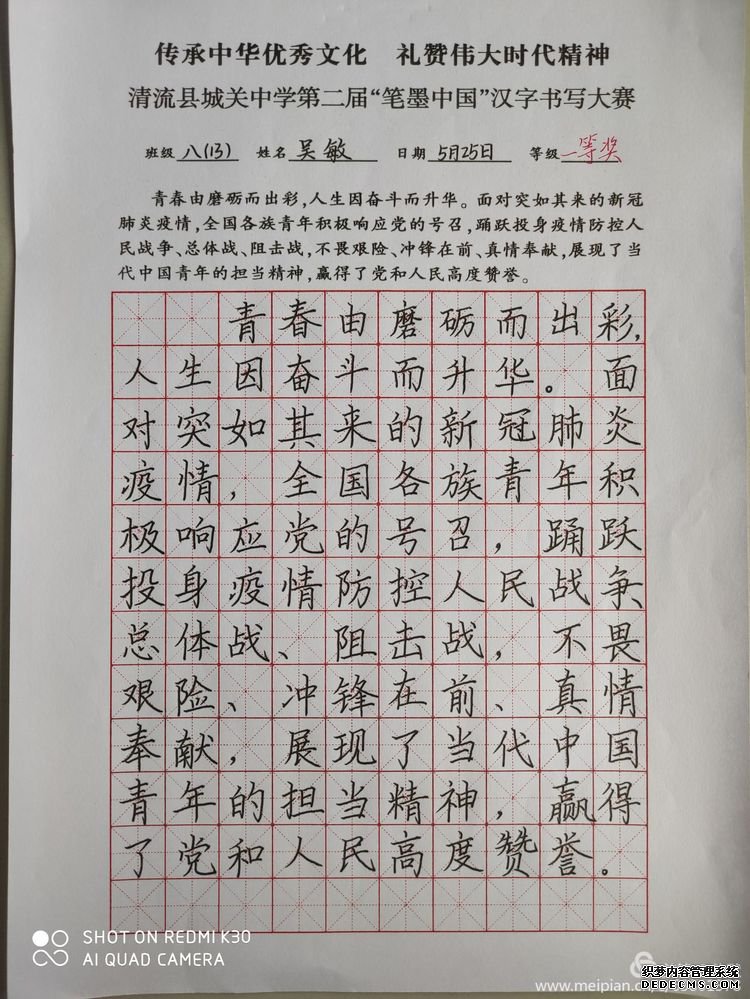 传承中华优秀文化 礼赞伟大时代精神
清流县城关中学第二届“笔墨中国”汉字书写大赛
班级 八(13) 姓名 吴敏 日期 5月25日 等级 一等奖
青春由磨砺而出彩,人生因奋斗而升华。面对突如其来的新冠
肺炎疫情,全国各族青年积极响应党的号召,踊跃投身疫情防控人
民战争、总体战、阻击战,不畏艰险、冲锋在前、真情奉献,展现了当
代中国青年的担当精神,赢得了党和人民高度赞誉。
青春由磨砺而出彩,
人生因奋斗而升华。面
对突如其来的新冠肺炎
疫情,全国各族青年积
极响应党的号召,踊跃
投身疫情防控人民战争、
总体战、阻击战,不畏
艰险、冲锋在前、真情
奉献,展现了当代中国
青年的担当精神,赢得
了党和人民高度赞誉。
SHOT ON REDMI K30
AI QUAD CAMERA
织梦内容管理系统
DEDECMS.COM
www.meipian.c